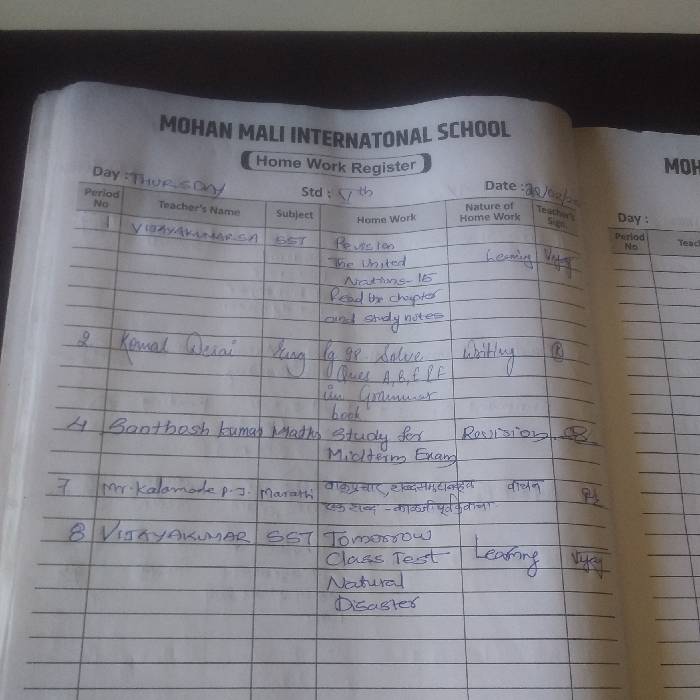 MOHAN MALI INTERNATONAL SCHOOL
Home Work Register
Day : THURSDAY Std : Vth Date : 22/02/20
Period No Teacher's Name Subject Home Work Nature of Home Work Teacher's Sign.
1 VIJAYAKUMAR.SA SST Revision
The United Learning
Nations-15
Read the chapter
and study notes
2 Komal Desai Eng Pg 98 Solve Writing
Ques A,B,C
in Grammar
book
4 Santhosh kumar Maths Study for Revision
Midterm Exam
7 Mr. Kalamode P.J. Marathi वाक्प्रचार, शब्दसमूहाबद्दल वाचन
एक शब्द -
8 VIJAYAKUMAR SST Tomorrow
Class Test Learning
Natural
Disaster
MOH
Day :
Period No Teac